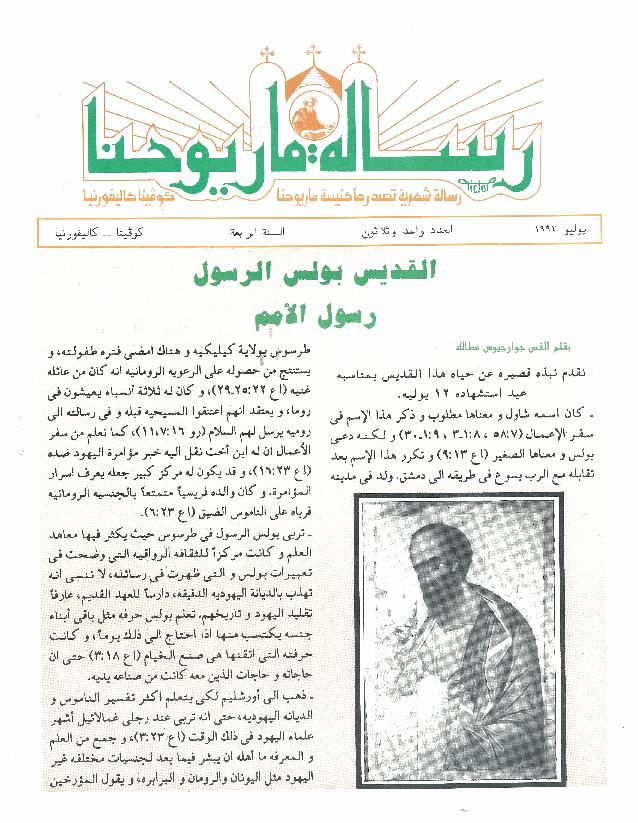 رسالة مار يوحنا
رسالة شهرية تصدرها كنيسة مار يوحنا
كوڤينا كاليفورنيا
يوليو ١٩٩٢
العدد واحد وثلاثون
السنة الرابعة
كوڤينا - كاليفورنيا
القديس بولس الرسول
رسول الأمم
بقلم القس جوارجيوس عطاالله
نقدم نبذه قصيره عن حياه هذا القديس بمناسبه
عيد استشهاده ١٢ يوليه.
ـ كان اسمه شاول و معناها مطلوب و ذكر هذا الإسم فى
سفر الإعمال (٥٨:٧ ، ١:٨-٣ ، ١:٩-٣٠) و لكنه دعى
بولس و معناها الصغير (اع ٩:١٣) و تكرر هذا الإسم بعد
تقابله مع الرب يسوع فى طريقه الى دمشق. ولد فى مدينه
طرسوس بولاية كيليكيه و هناك امضى فتره طفولته، و
يستنتج من حصوله على الرعويه الرومانيه انه كان من عائله
غنيه (اع ٢٥:٢٢-٢٩)، و كان له ثلاثة أنسباء يعيشون فى
روما، و يعتقد انهم اعتنقوا المسيحيه قبله و فى رسالته الى
روميه يرسل لهم السلام (رو ١١،٧:١٦)، كما نعلم من سفر
الأعمال ان له ابن أخت نقل اليه خبر مؤامرة اليهود ضده
(اع ١٦:٢٣)، و قد يكون له مركز كبير جعله يعرف اسرار
المؤامرة. و كان والده فريسياً متمتعاً بالجنسيه الرومانيه
فرباه على الناموس الضيق (اع ٦:٢٣).
ـ تربى بولس الرسول فى طرسوس حيث يكثر فيها معاهد
العلم و كانت مركزاً للثقافه الرواقيه التى وضحت فى
تعبيرات بولس و التى ظهرت فى رسائله، لا ننسى انه
تهذب بالديانة اليهوديه الدقيقه، دارساً للعهد القديم، عارفاً
تقليد اليهود و تاريخهم. تعلم بولس حرفه مثل باقى أبناء
جنسه يكتسب منها اذا احتاج الى ذلك يوماً، و كانت
حرفته التى اتقنها هى صنع الخيام (اع ٣:١٨) حتى ان
حاجاته و حاجات الذين معه كانت من صناعه يديه.
ـ ذهب الى أورشليم لكى يتعلم أكثر تفسير الناموس و
الديانه اليهوديه، حتى انه تربى عند رجلى غمالائيل أشهر
علماء اليهود فى ذلك الوقت (اع ٣:٢٢)، و جمع من العلم
و المعرفه ما أهله ان يبشر فيما بعد لجنسيات مختلفه غير
اليهود مثل اليونان والرومان و البرابره، و يقول المؤرخين